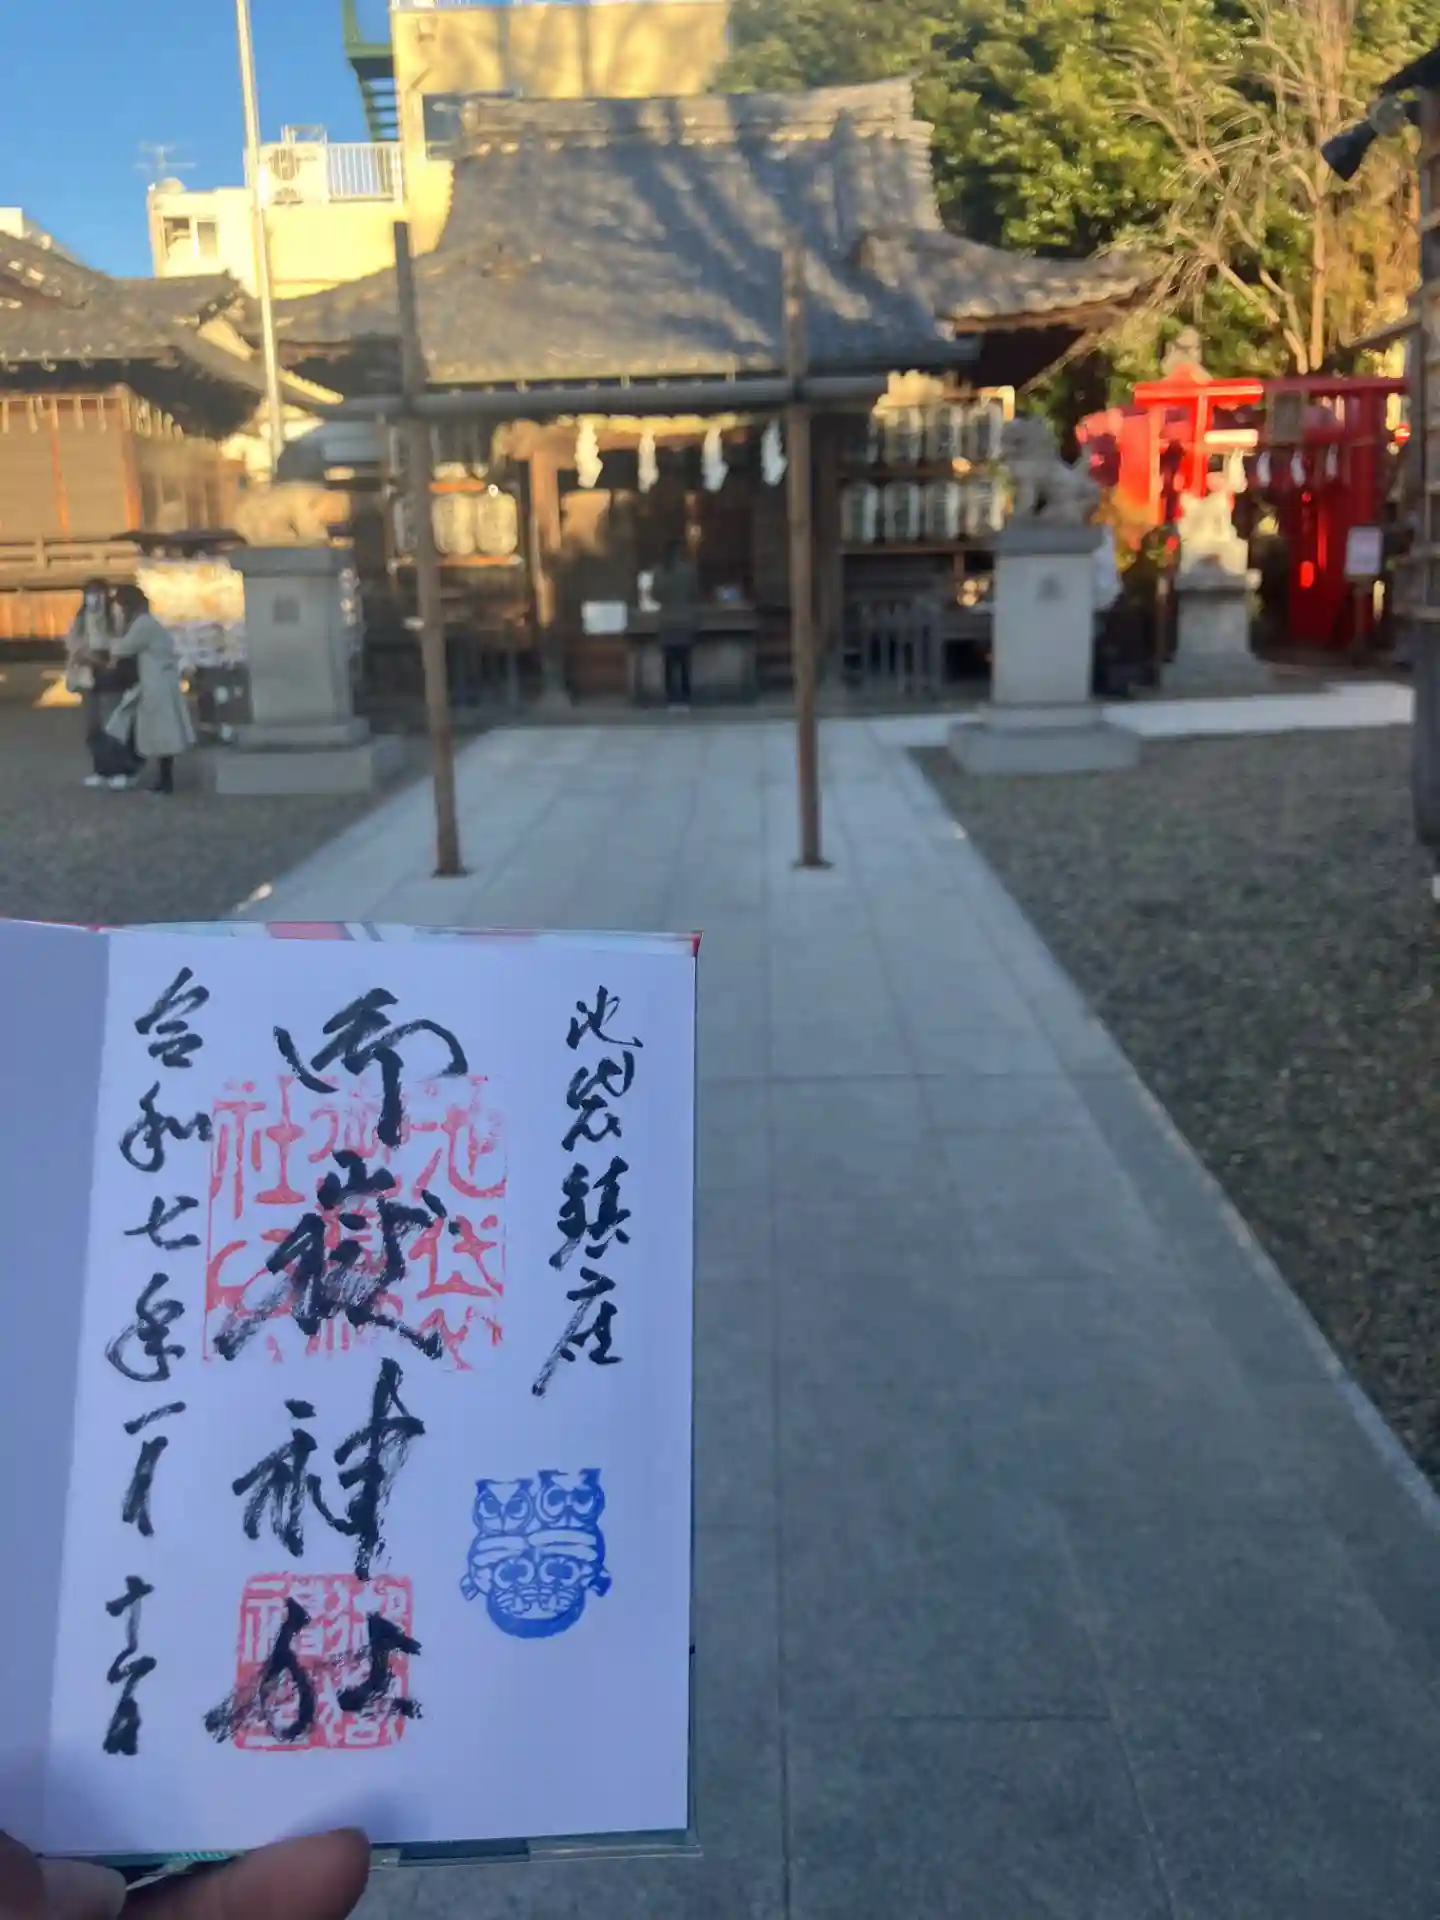 池袋鎮座
御嶽神社
令和七年一月十二日